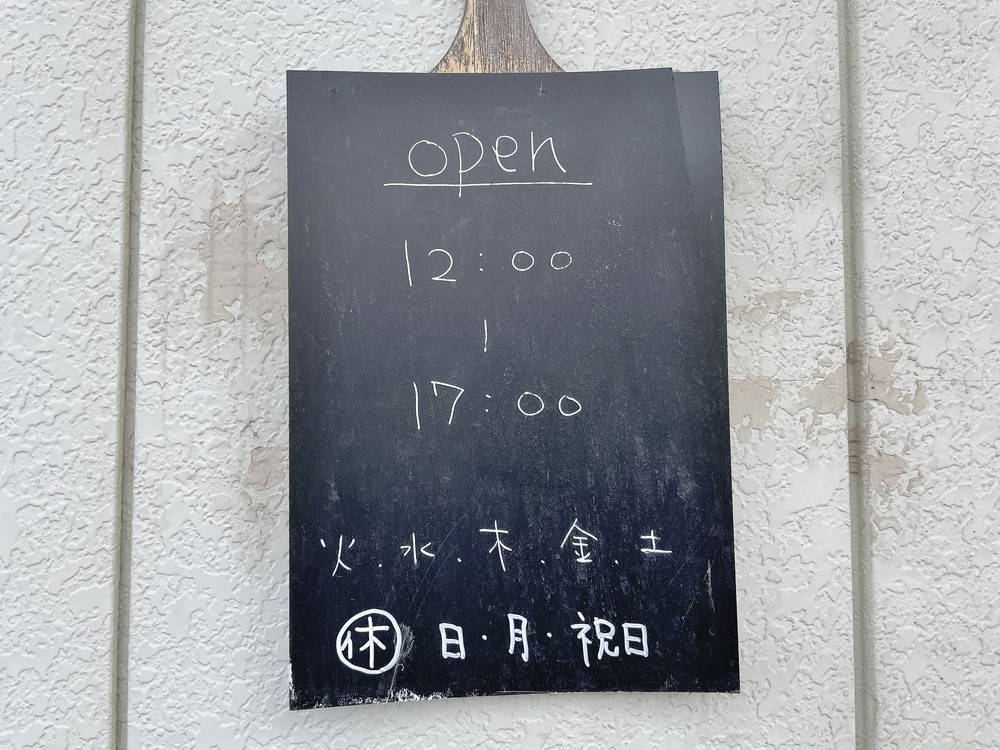 open
12:00
|
17:00
火.水.木.金.土
㊡ 日・月・祝日